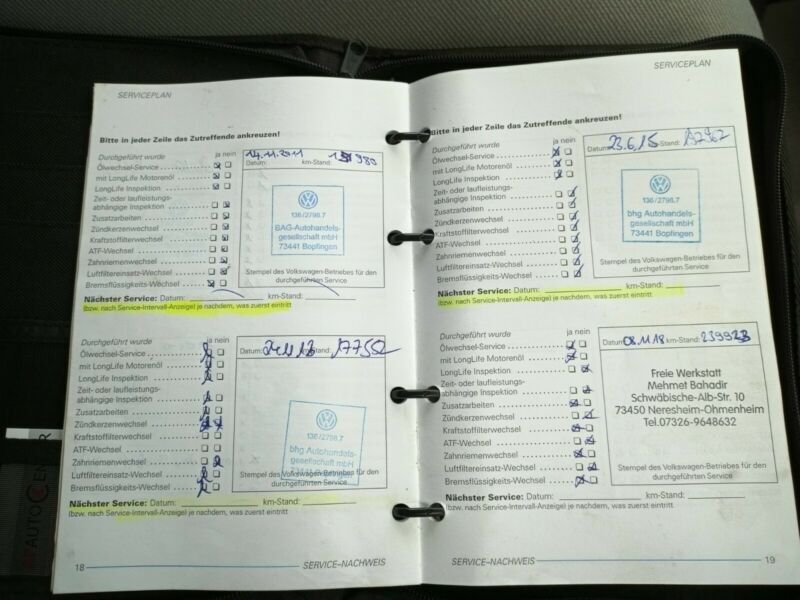 SERVICEPLAN
Bitte in jeder Zeile das Zutreffende ankreuzen!
Durchgeführt wurde ja nein
Ölwechsel-Service
mit LongLife Motorenöl
LongLife Inspektion
Zeit- oder laufleistungs-
abhängige Inspektion
Zusatzarbeiten
Zündkerzenwechsel
Kraftstoffilterwechsel
ATF-Wechsel
Zahnriemenwechsel
Luftfiltereinsatz-Wechsel
Bremsflüssigkeits-Wechsel
14.11.2011
Datum: km-Stand:
136/2798.7
BAG-Autohandels-
gesellschaft mbH
73441 Bopfingen
Stempel des Volkswagen-Betriebes für den
durchgeführten Service
Nächster Service: Datum: km-Stand:
(bzw. nach Service-Intervall-Anzeige) je nachdem, was zuerst eintritt
Durchgeführt wurde ja nein
Ölwechsel-Service
mit LongLife Motorenöl
LongLife Inspektion
Zeit- oder laufleistungs-
abhängige Inspektion
Zusatzarbeiten
Zündkerzenwechsel
Kraftstoffilterwechsel
ATF-Wechsel
Zahnriemenwechsel
Luftfiltereinsatz-Wechsel
Bremsflüssigkeits-Wechsel
Datum: km-Stand: 177552
136/2798.7
bhg Autohandels-
gesellschaft mbH
73441 Bopfingen
Stempel des Volkswagen-Betriebes für den
durchgeführten Service
Nächster Service: Datum: km-Stand:
(bzw. nach Service-Intervall-Anzeige) je nachdem, was zuerst eintritt
18 SERVICE-NACHWEIS
SERVICEPLAN
Bitte in jeder Zeile das Zutreffende ankreuzen!
Durchgeführt wurde ja nein
Ölwechsel-Service
mit LongLife Motorenöl
LongLife Inspektion
Zeit- oder laufleistungs-
abhängige Inspektion
Zusatzarbeiten
Zündkerzenwechsel
Kraftstoffilterwechsel
ATF-Wechsel
Zahnriemenwechsel
Luftfiltereinsatz-Wechsel
Bremsflüssigkeits-Wechsel
Datum: 23.6.15 km-Stand:
136/2798.7
bhg Autohandels-
gesellschaft mbH
73441 Bopfingen
Stempel des Volkswagen-Betriebes für den
durchgeführten Service
Nächster Service: Datum: km-Stand:
(bzw. nach Service-Intervall-Anzeige) je nachdem, was zuerst eintritt
Durchgeführt wurde ja nein
Ölwechsel-Service
mit LongLife Motorenöl
LongLife Inspektion
Zeit- oder laufleistungs-
abhängige Inspektion
Zusatzarbeiten
Zündkerzenwechsel
Kraftstoffilterwechsel
ATF-Wechsel
Zahnriemenwechsel
Luftfiltereinsatz-Wechsel
Bremsflüssigkeits-Wechsel
Datum: 08.11.18 km-Stand:
Freie Werkstatt
Mehmet Bahadir
Schwäbische-Alb-Str. 10
73450 Neresheim-Ohmenheim
Tel.07326-9648632
Stempel des Volkswagen-Betriebes für den
durchgeführten Service
Nächster Service: Datum: km-Stand:
(bzw. nach Service-Intervall-Anzeige) je nachdem, was zuerst eintritt
SERVICE-NACHWEIS 19